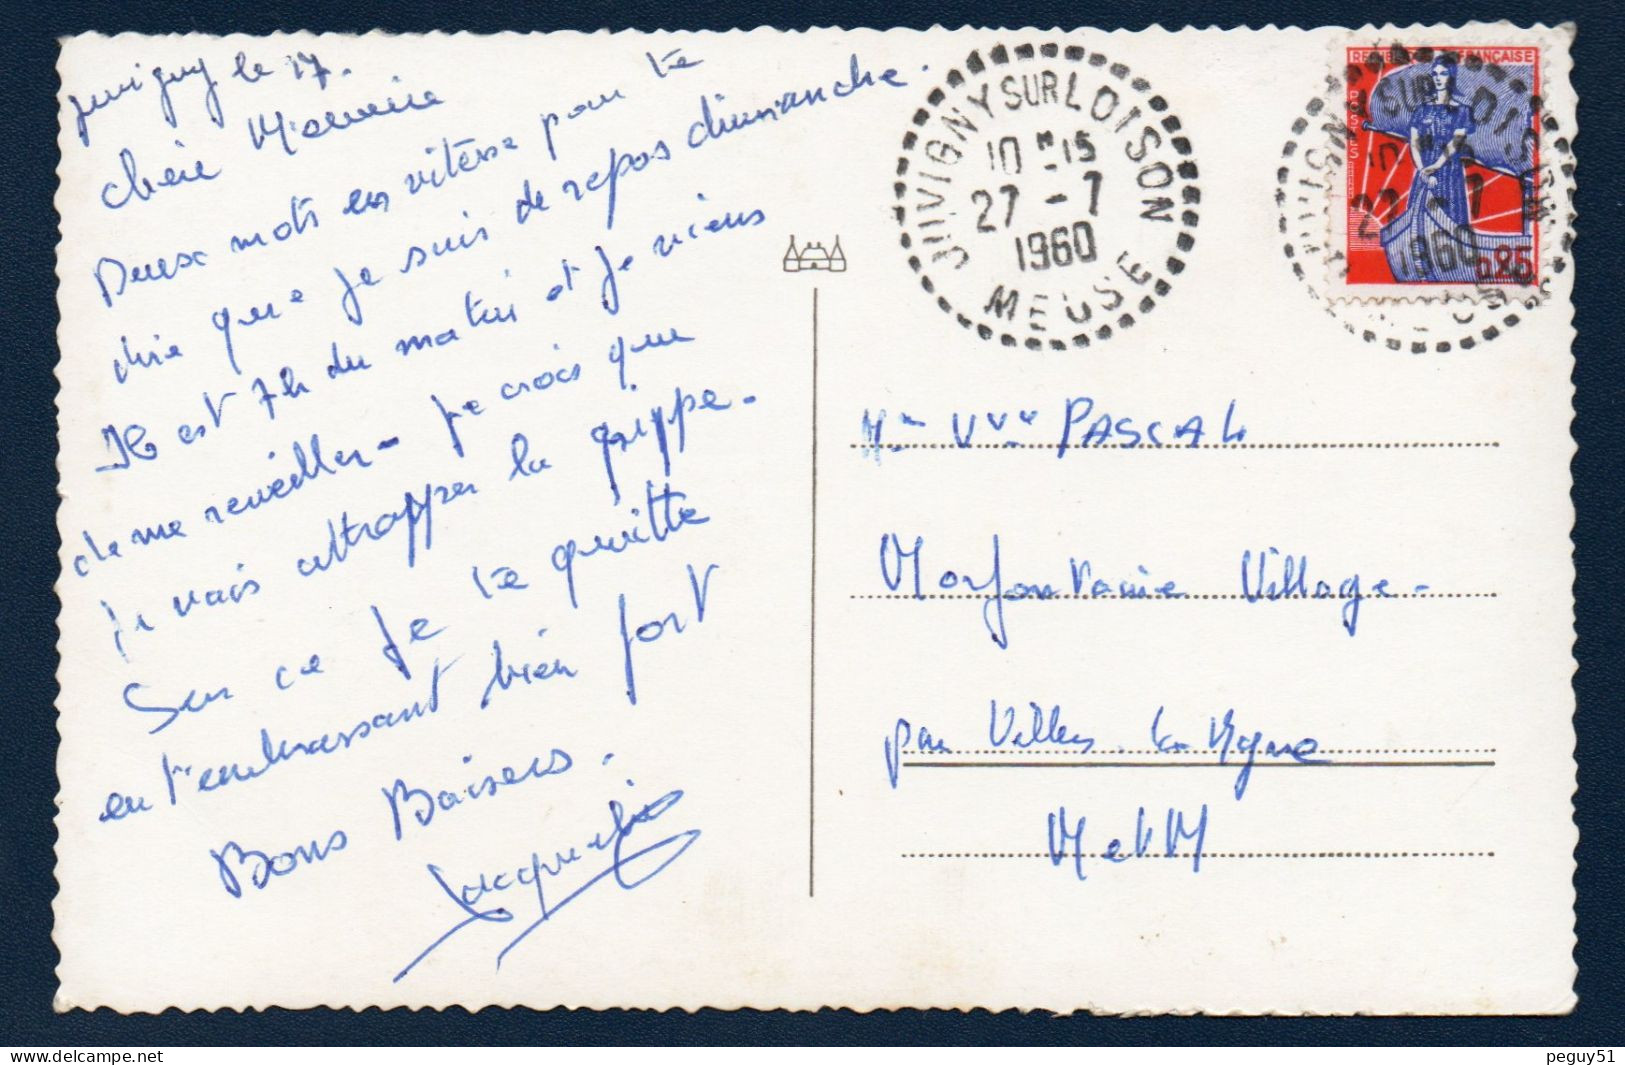 Juvigny le 17.
Chère Mémère
Deux mots en vitesse pour te
dire que je suis de repos dimanche.
Il est 7h du matin et je viens
de me reveiller - Je crois que
je vais attrapper la grippe -
Sur ce je te quitte
en t'embrassant bien fort
Bons Baisers.
Jacqueline
JUVIGNY SUR LOISON
10 H 15
27 - 7
1960
MEUSE
REPUBLIQUE FRANÇAISE
POSTES
0,25
JUVIGNY SUR LOISON
10 H 15
27 - 7
1960
MEUSE
Mme Vve PASCAL
Morfontaine Village -
par Villers-la-
MetM
peguy51